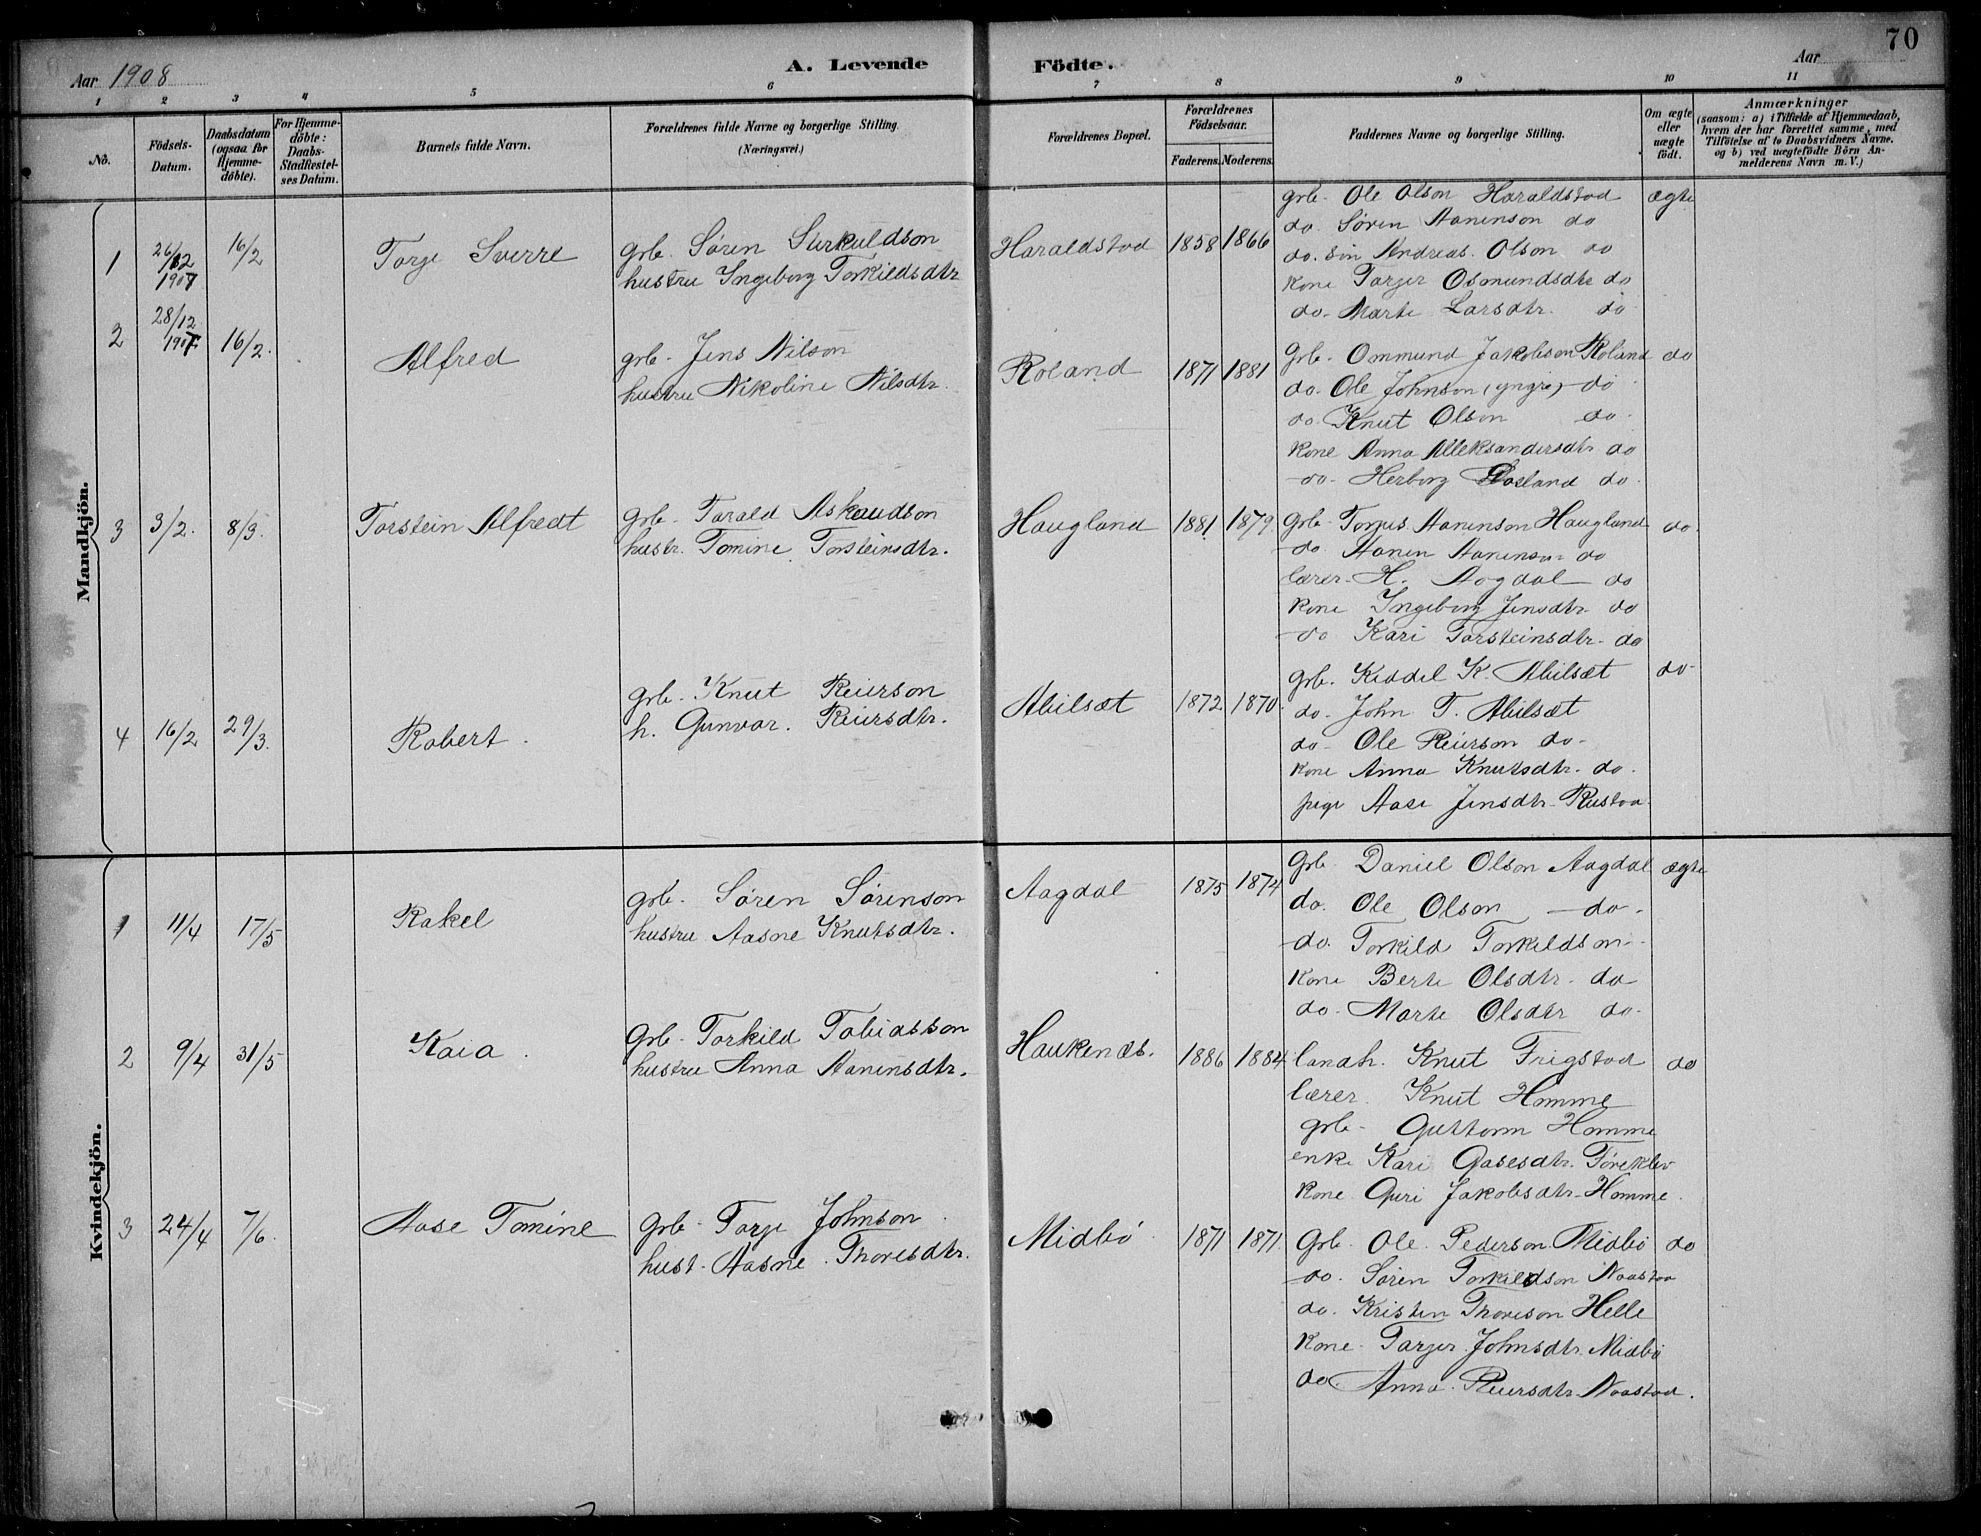 70
Aar 1908
A. Levende Födte.
Aar
1 2 3 4 5 6 7 8 9 10 11
No.
Födsels-
Datum.
Daabsdatum
(ogsaa for
Hjemme-
døbte).
For Hjemme-
døbte:
Daabs-
Stadfæstel-
ses Datum.
Barnets fulde Navn.
Forældrenes fulde Navne og borgerlige Stilling.
(Næringsvei.)
Forældrenes Bopæl.
Forældrenes
Födselsaar.
Faderens. Moderens.
Faddernes Navne og borgerlige Stilling.
Om ægte
eller
uægte
födt.
Anmærkninger
(saasom: a) i Tilfælde af Hjemmedaab,
hvem der har forrettet samme, med
Tilföielse af to Daabsvidners Navne.
og b) ved uægtefödte Börn An-
melderens Navn m. V.)
Mandkjön.
1 26/12 1907 16/2 Torje Sverre
grb. Søren Sirkuldson
hustru Ingeborg Torkildsdtr
Haraldstad 1858 1866
grb. Ole Olson Haraldstad ægte
do. Søren Aanenson do
do. søn Andreas Olson do
kone Torjer Osmundsdtr do
do. Marte Larsdtr. do
2 28/12 1907 16/2. Alfred
grb. Jens Nilson
hustru Nikoline Nilsdtr.
Roland 1871 1881
Grb. Ommund Jakobson Roland do
do. Ole Johnson (yngre) do
do. Knut Olson do.
kone Anna Alleksandersdtr do
do. Herborg Rosland do.
3 3/2. 8/3. Torstein Alfredt
grb. Tarald Askaudson
hustr. Tomine Torsteinsdtr.
Haugland 1881 1879.
grb. Torjus Aanenson Haugland do.
do Aanen Aanenson do
lærer H. Aagdal do
kone Ingeborg Jensdtr. do
do Kari Torsteinsdtr. do
4 16/2 29/3. Robert.
grb. Knut Reierson
h. Gunvor. Reiersdtr.
Abilsæt 1872 1870.
grb. Kiddel K. Abilsæt do
do. John T. Abilsæt
do. Ole Reierson do.
kone Anna Knutsdtr. do.
pige Aase Jensdtr. Rustad
Kvindekjön.
1 11/4 17/5 Rakel
grb. Søren Sørenson
hustru Aasne Knutsdtr.
Aagdal 1875 1874
Grb Daniel Olson Aagdal ægte
do. Ole Olson do.
do. Torkild Torkildson
kone Berte Olsdtr. do
do. Marte Olsdtr do.
2 9/4 31/5 Kaia.
Grb. Torkild Tobiasson
hustru Anna Aanensdtr.
Haukenæs. 1886 1884
landh. Knut Trigstad do
lærer. Knut Homme
grb. Guttorm Homme
enke Kari Gasesdtr. Føreklev
kone Guri Jakobsdtr. Homme.
3 24/4 7/6. Aase Tomine
grb. Torje Johnson
hust. Aasne Thoresdtr.
Midbø 1871 1871
Grb. Ole Pederson Midbø do
do. Søren Torkildson Naastad
do. Kristen Thoreson Helle
kone. Torjer Johnsdtr. Midbø
do. Anna Reiersdtr. Naastad.